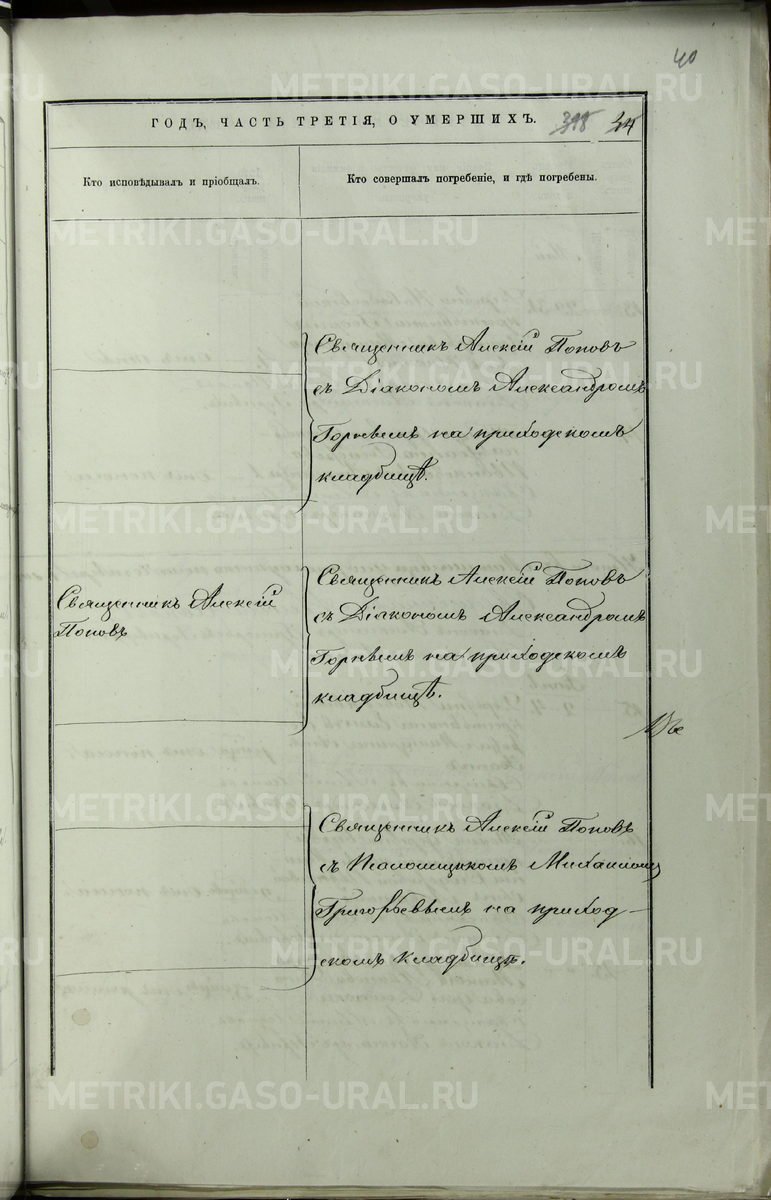 40
ГОДЪ, ЧАСТЬ ТРЕТІЯ, О УМЕРШИХЪ.
Кто исповѣдывалъ и пріобщалъ.
Кто совершалъ погребеніе, и гдѣ погребены.
Священникъ Алексій Поповъ
съ Діакономъ Александромъ
на приходскомъ
кладбищѣ.
Священникъ Алексій
Поповъ
Священникъ Алексій Поповъ
съ Діакономъ Александромъ
на приходскомъ
кладбищѣ.
Священникъ Алексій Поповъ
съ Псаломщикомъ Михаиломъ
Григорьевымъ на приход-
скомъ кладбищѣ.
METRIKI.GASO-URAL.RU